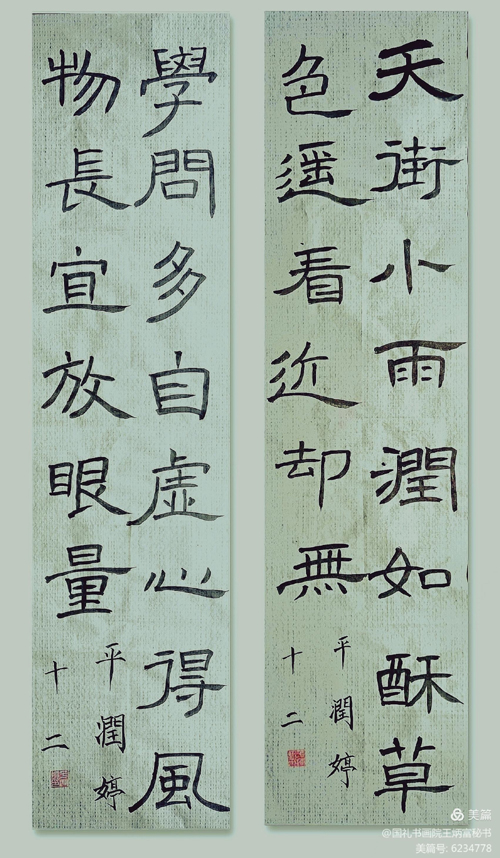 天街小雨潤如酥草
色遥看近却無
平潤婷
十二
學問多自虚心得風
物長宜放眼量
平潤婷
十二
美篇
@国礼书画院王炳富秘书
美篇号: 6234778